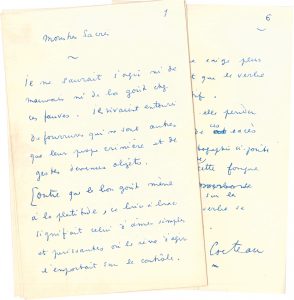 1
Monstres Sacrés
Il ne saurait s'agir ni de
mauvais ni de bon goût chez
ces fauves. Ils vivaient entourés
de fourrures qui ne sont autres
que leur propre crinière et de
gestes devenus objets.
Outre que le bon goût mène
à la platitude, ce bric à brac
signifiait celui d'âmes simples
et puissantes où le sens d'agir
l'emportait sur le contrôle.
6
exige plus
que le verbe
elles perdent
ces
sacrés
cette fougue
verbe se
Cocteau